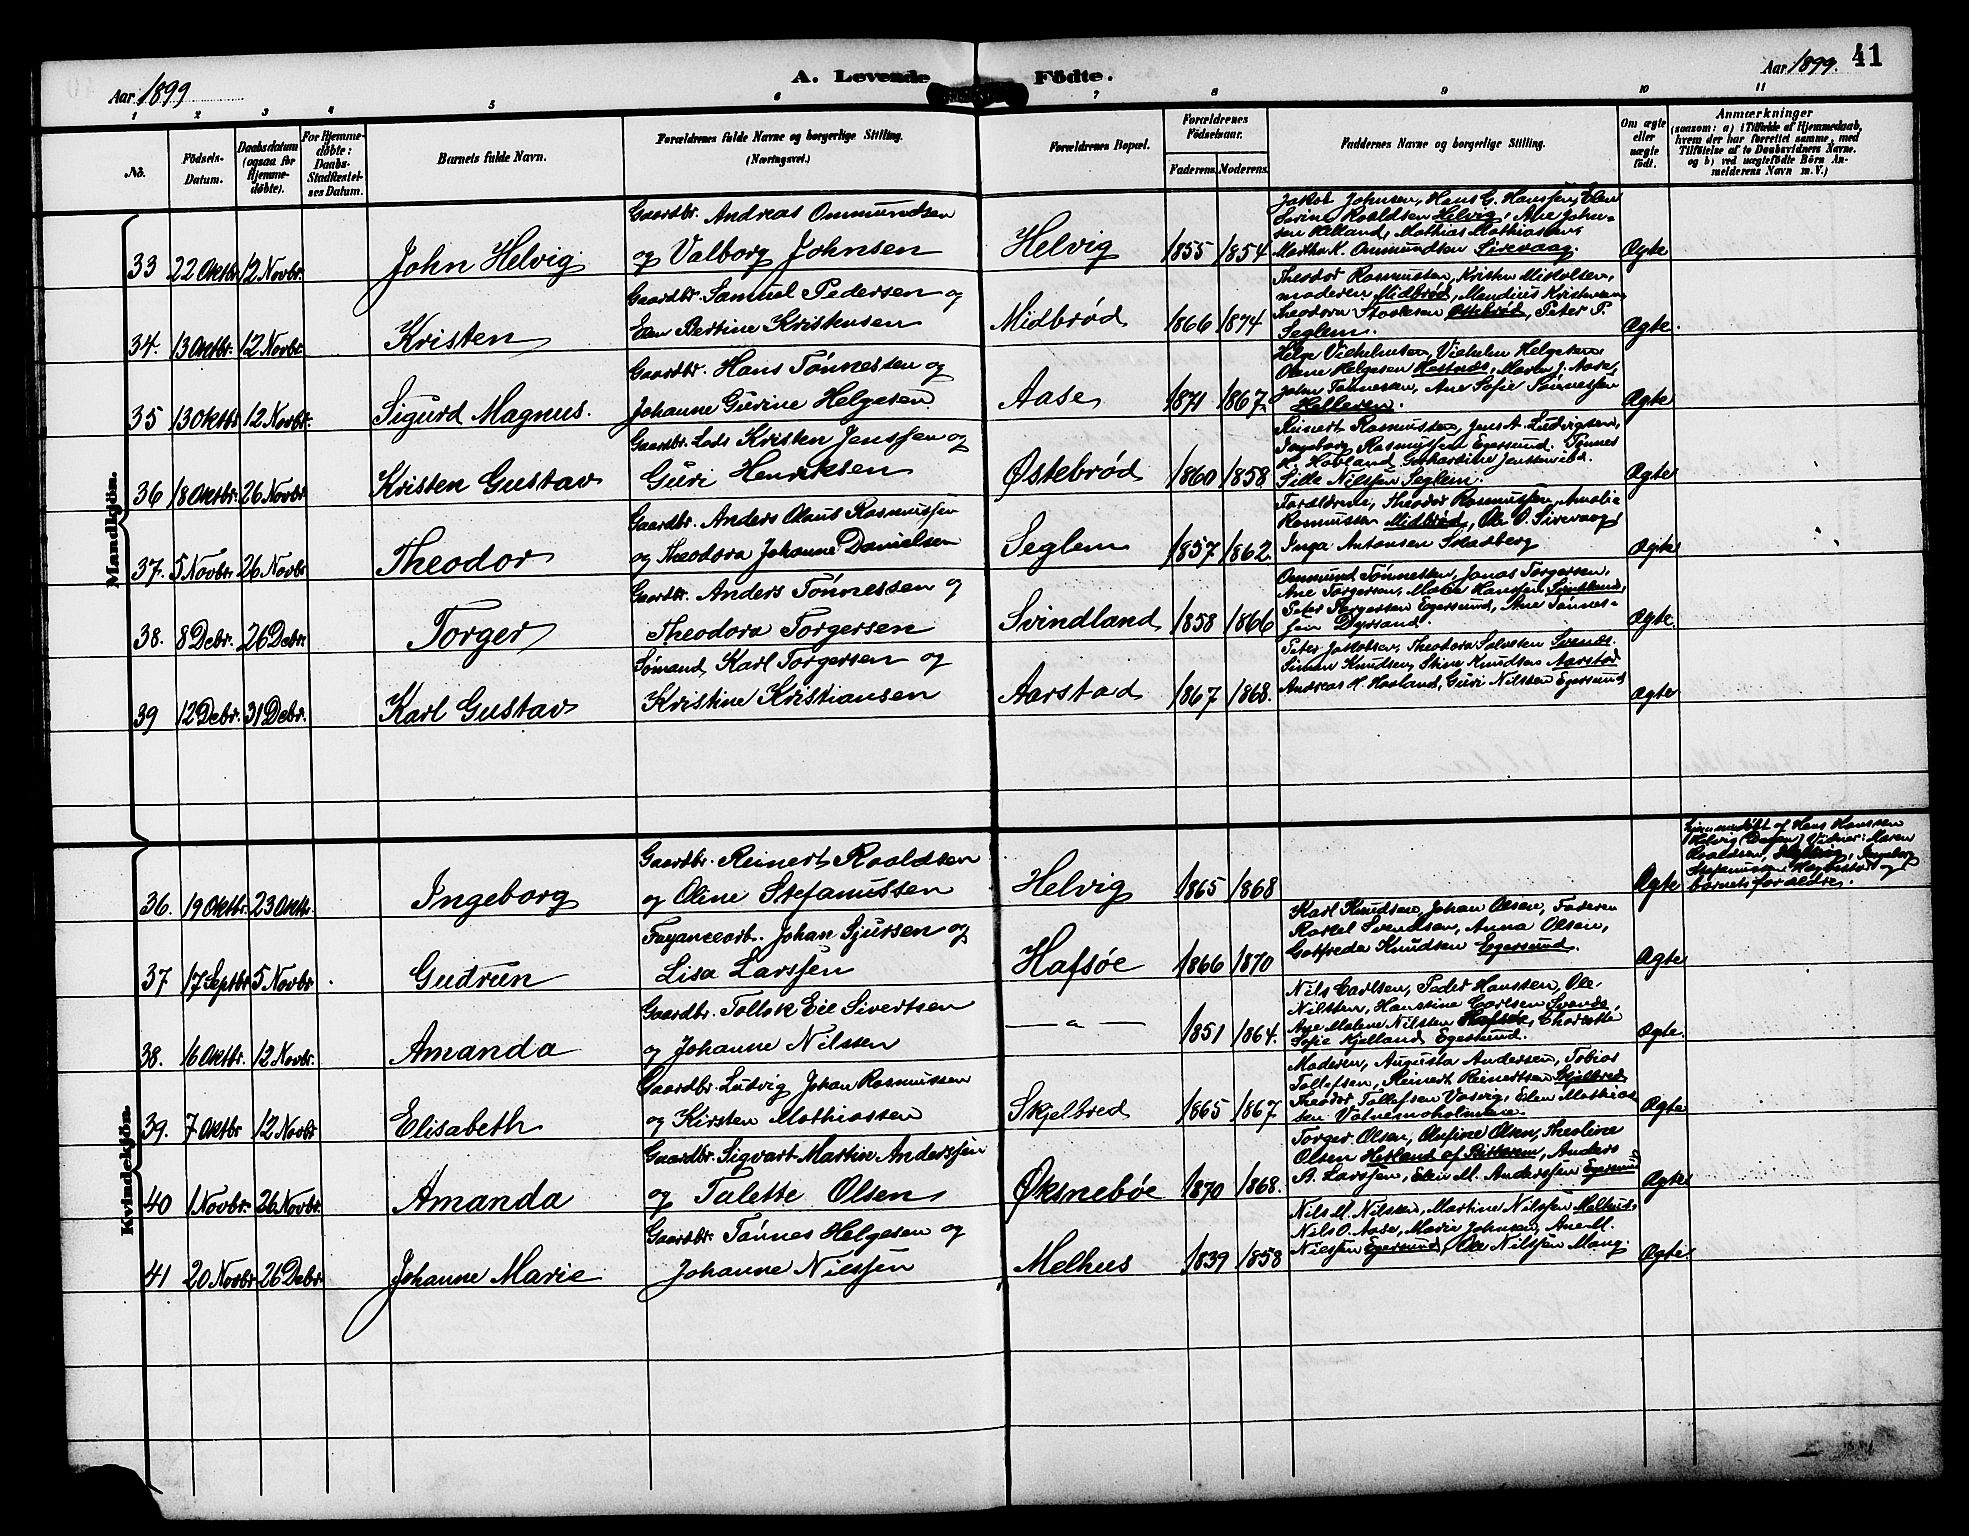 Aar 1899
A. Levende Födte.
Aar 1899. 41
1 2 3 4 5 6 7 8 9 10 11
No.
Födsels-Datum.
Daabsdatum (ogsaa for Hjemme-døbte).
For Hjemme-døbte: Daabs-Stadfæstel-ses Datum.
Barnets fulde Navn.
Forældrenes fulde Navne og borgerlige Stilling. (Næringsvei.)
Forældrenes Bopæl.
Forældrenes Födselsaar.
Faderens. Moderens.
Faddernes Navne og borgerlige Stilling.
Om ægte eller uægte födt.
Anmærkninger
(saasom: a) i Tilfælde af Hjemmedaab, hvem der har forrettet samme, med Tilföielse af to Daabsvidners Navne. og b) ved uægtefödte Börn An-melderens Navn m.V.)
Mandkjön.
33 22 Oktbr. 12 Novbr. John Helvig
Gaardbr. Andreas Ommundsen
og Valborg Johnsen
Helvig 1855 1854
Jakob Johnsen, Hans G. Hanssen, Elen
Serine Roaldsen Helvig, Ane John-
sen Mathias Mathiassen,
Martha K. Ommundsen Sirevaag.
Ægte
34. 13 Oktbr. 12 Novbr. Kristen
Gaardbr. Samuel Pedersen og
Elen Bertine Kristensen
Midbrød 1866 1874
Theodor Rasmussen, Kristen Mikkelsen,
moderen Midbrød, Kristensen,
Theodora Østebrød, Peter P.
Seglem.
Ægte.
35 13 Oktbr. 12 Novbr. Sigurd Magnus.
Gaardbr. Hans Tønnessen og
Johanne Gurine Helgesen
Aase 1871 1867
Helge Vilhelmsen, Vilhelm Helgesen
Olene Helgesen Hestnæs, Maren J. Aase,
John Tønnesen, Ane Sofie Tønnessen
Helleren.
Ægte
36 18 Oktbr. 26 Novbr. Kristen Gustav
Gaardbr. Lods Kristen Jenssen og
Guri Henriksen
Østebrød 1860 1858
Reinert Rasmussen, Jens A. Ludvigsen,
Ingeborg Rasmussen Egersund. Tønnes
K. Hovland, Jenssen ibd.
Sille Nilssen Seglem.
Ægte
37. 5 Novbr. 26 Novbr Theodor
Gaardbr. Anders Olaus Rasmussen
og Theodora Johanne Danielsen
Seglem 1857 1862.
Forældrene, Theodor Rasmussen, Amalie
Rasmussen Midbrød, Ole O. Sirevaag,
Inga Antonsen Svadberg
Ægte
38. 8 Debr. 26 Debr. Torger
Gaardbr. Anders Tønnessen og
Theodora Torgersen
Svindland 1858 1866
Ommund Tønnessen, Jonas Torgersen,
Ane Torgersen, Malie Hanssen Svindland,
Peter Torgersen Egersund, Ane Tønnes-
sen Dyrsand.
Ægte.
39 12 Debr. 31 Debr. Karl Gustav
Sømand Karl Torgersen og
Kristine Kristiansen
Aarstad 1867 1868.
Peter Jakobsen, Theodora Salvesen Svends.
Simon Knudsen, Stine Knudsen Aarstad
Andreas H. Hovland, Guri Nilssen Egersund
Ægte
Kvindekjön.
36. 19 Oktbr. 23 Oktbr. Ingeborg
Gaardbr. Reinert Roaldsen
og Oline Stefanussen
Helvig 1865 1868
Ægte
Hjemmedøbt af Hans Hanssen
Helvig Vidner: Maren
Roaldsen, Ingeborg
Stefanussen og
barnets forældre.
37 17 Septbr. 5 Novbr. Gudrun
Fayancearb. Johan Sjursen og
Lisa Larssen
Hafsøe 1866 1870
Karl Knudsen, Johan Olsen, Faderen
Rakel Svendsen, Anna Olsen,
Gotfreda Knudsen Egersund.
Ægte
38. 16 Oktbr. 12 Novbr. Amanda
Gaardbr. Tollak Eie Sivertsen
og Johanne Nilssen
— " — 1851 1864.
Nils Carlsen, Peder Hanssen, Ole
Nilssen, Hanstine Carlsen Svends.
Ane Malene Nilssen Hafsøe, Charlotte
Sofie Kjelland Egersund.
Ægte.
39. 7 Oktbr 12 Novbr Elisabeth
Gaardbr. Ludvig Johan Rasmussen
og Kirsten Mathiassen
Skjelbred 1865 1867
Moderen, Augusta Andersen, Tobias
Tollefsen, Reinert Reinertsen Skjelbred
Theodor Tollefsen Vasvig, Elen Mathias-
sen Vatnemoholmene.
Ægte
40 1 Novbr. 26 Novbr. Amanda
Gaardbr. Sigvart Martin Anderssen
og Talette Olsen
Øksnebøe 1870 1868.
Torger Olsen, Olufine Olsen, Theoline
Olsen Hetland, Anders
A. Larssen, Elen M. Anderssen Egersund
Ægte
41 20 Novbr 26 Debr Johanne Marie
Gaardbr. Tønnes Helgesen og
Johanne Nilssen
Melhus 1839 1858
Nils M. Nilssen, Martine Nilssen Melhus.
Nils O. Aase, Marie Johnsen, Ane M.
Nilssen Egersund, Ole Nilssen Mong.
Ægte